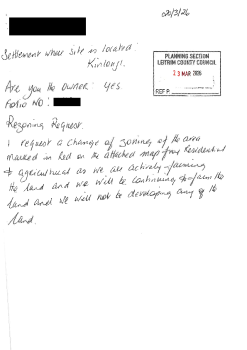 20/3/26
Settlement where site is located:
Kinlough.
PLANNING SECTION
LEITRIM COUNTY COUNCIL
23 MAR 2026
REF P:
Are you the owner: YES.
Folio NO:
Rezoning Request.
I request a change of zoning of the area
marked in Red on the attached map from Residential
to agricultural as we are actively farming
the land and we will be continuing to farm the
land and we will not be developing any of the
land.